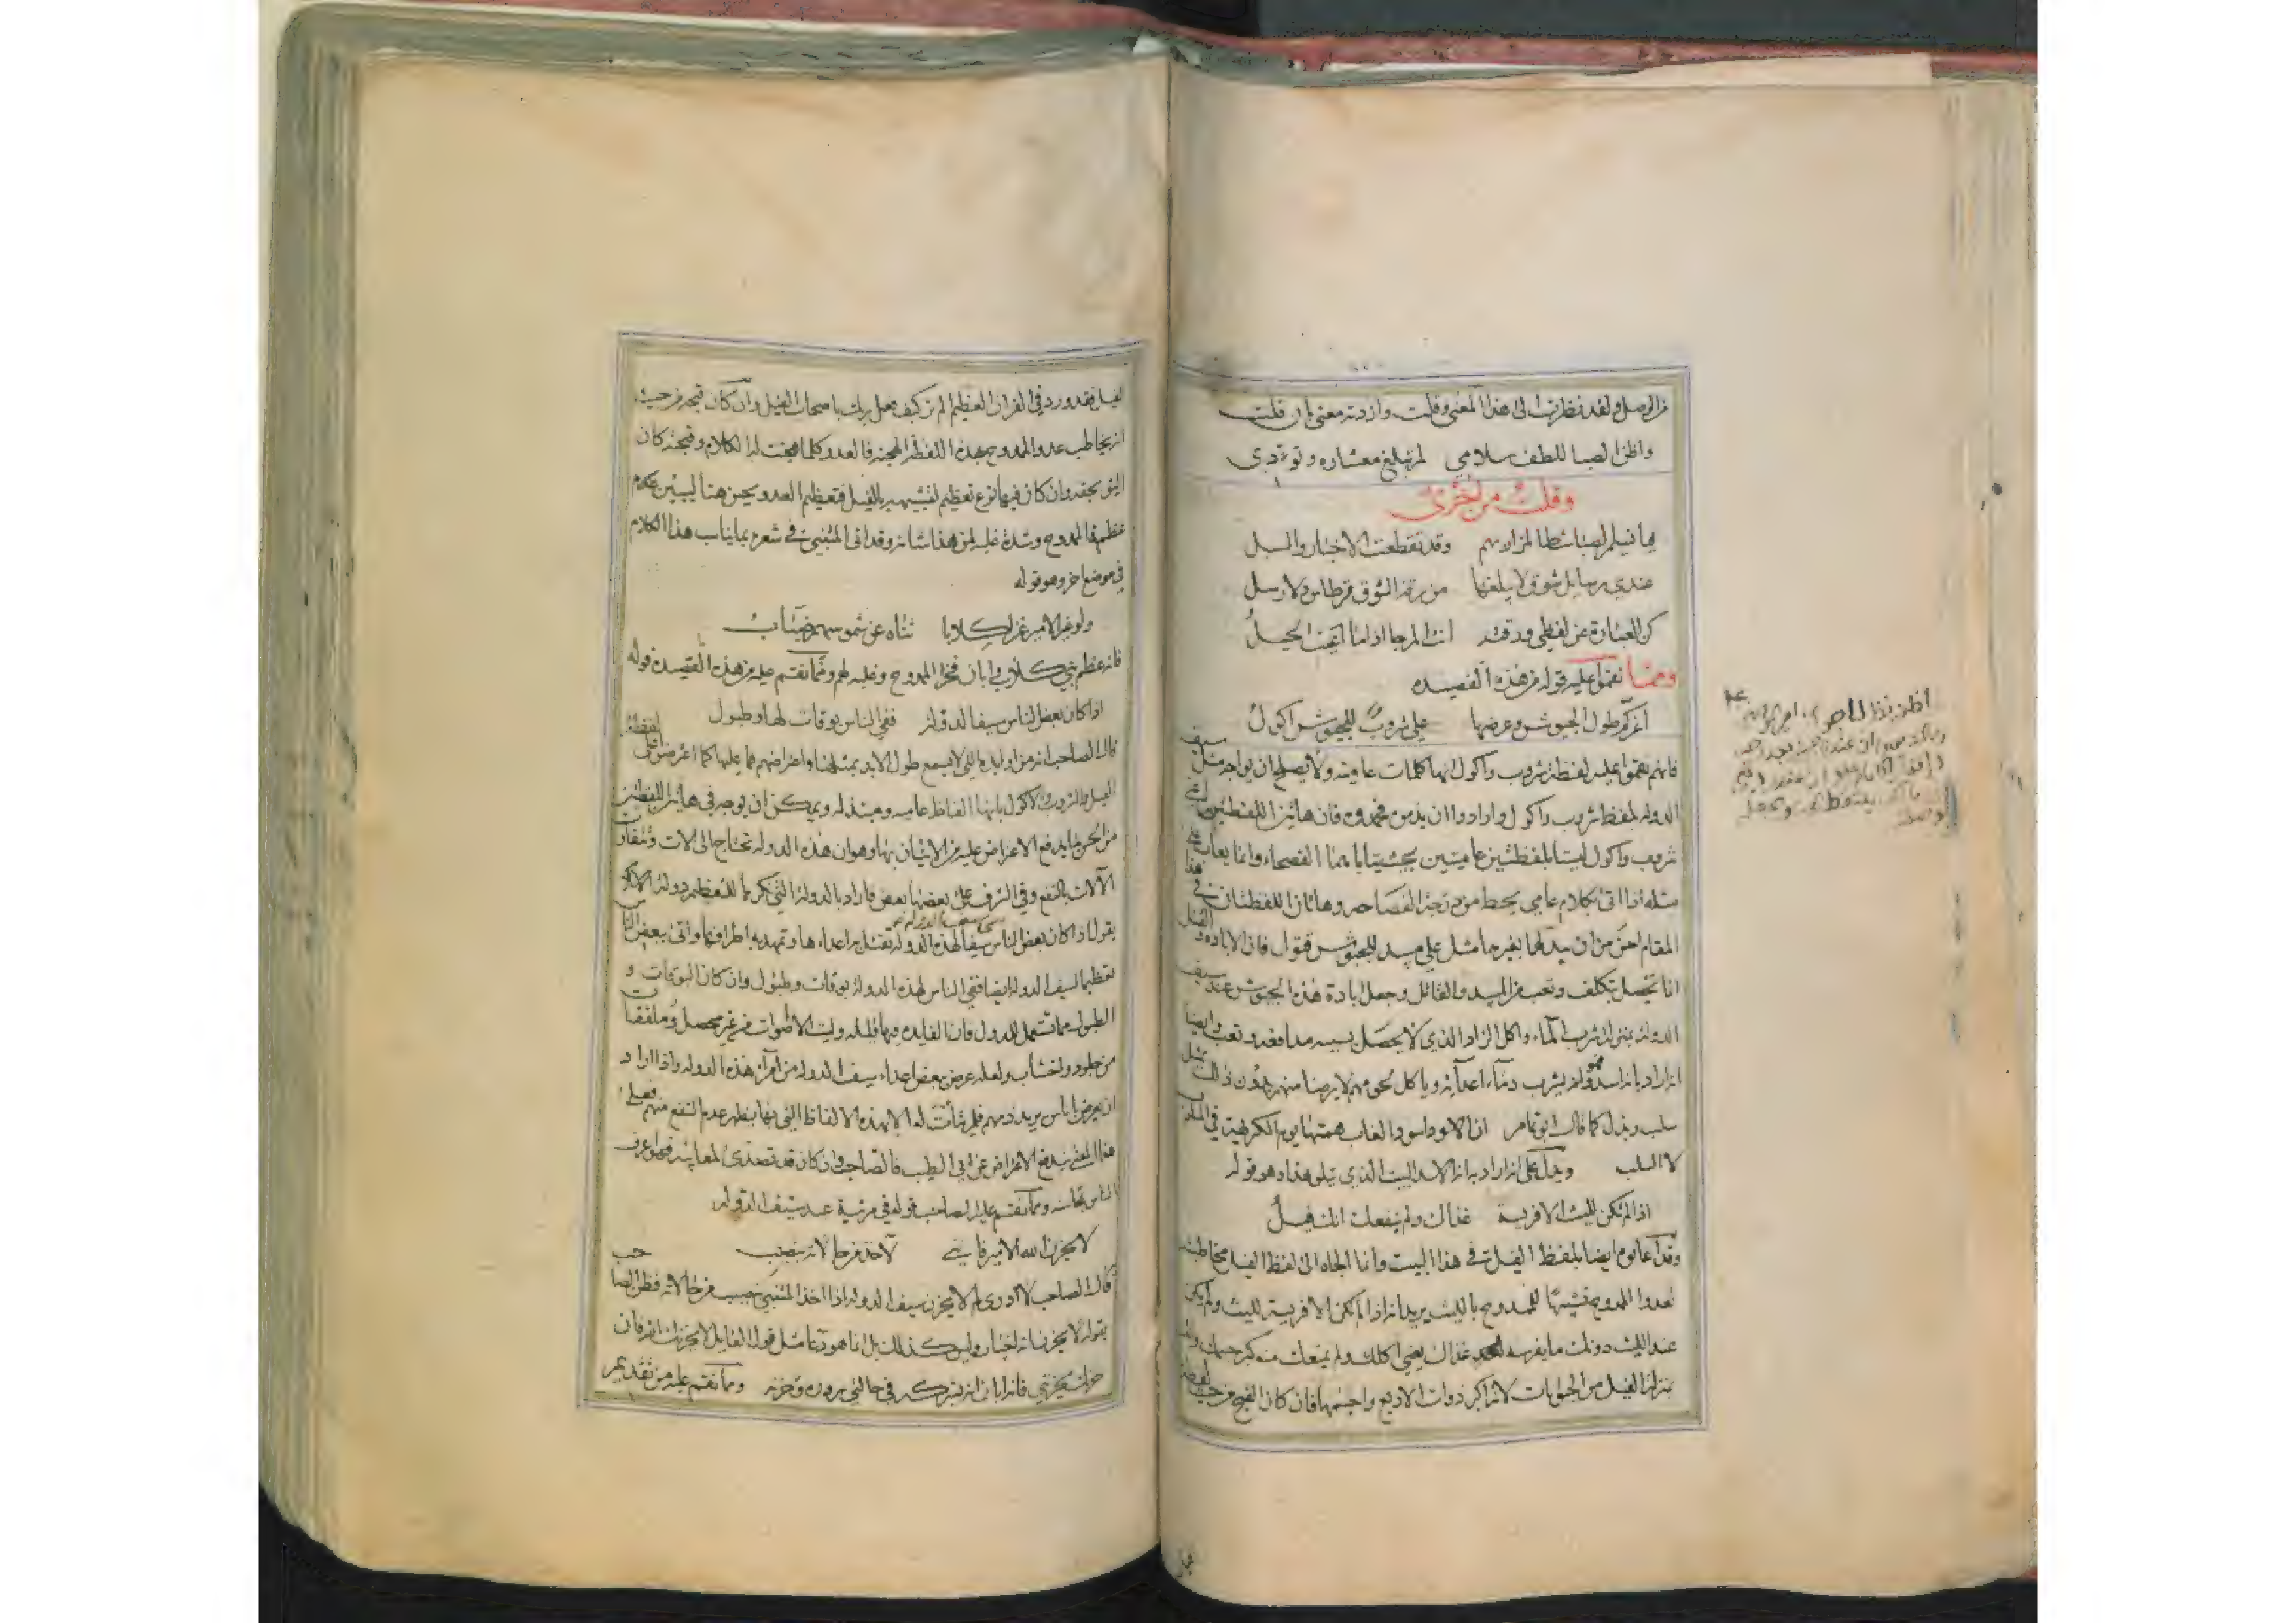 من الوصل ولقد نظرت الى هذا المعنى وقلت وازدته معنى بان قلت
واظن الصبا للطف سلامي لم تبلغ معشاره وتؤدى
وقلت من اخرى
هيا نسيم الصبا شط المزار بهم وقد تقطعت الاخبار والسبل
عندي رسايل شوق لا يبلغها من رقة الشوق قرطاس ولا رسل
كن للعبارة عن لفظي ورقته انت المرجا اذا ما اعيت الحيل
ومما نقموا عليه قوله من هذه القصيده
اغركم طول الجيوش وعرضها علي شروب للجيوش اكول
فانهم نقموا عليه لفظة شروب واكول انها كلمات عاميه ولا يصلح ان يواجه مثل سيف
الدوله بلفظ شروب واكول وارادوا ان يذمن فان هاتين اللفظتين
شروب واكول ليستا بلفظتين عاميتين بحيث يتاباهما الفصحاء وانما يعاب على
مثله اذا اتى بكلام عامي يحط من درجة الفصاحه وهاتان اللفظتان في هذا
المقام احسن من ان يبدلها بغيرها مثل علي مبيد للجيوش قتول فان الاباده والقتل
انما تحصل بتكلف وتعب من المبيد والقاتل وجعل ابادة هذه الجيوش عند سيف
الدوله بمنزلة شرب الماء واكل الزاد الذي لا يحصل بسببه مدافعه وتعب وايضا
اراد بانه اسد وانه يشرب دماء اعدائه وياكل لحومهم لا يرضا منهم بدون ذلك
سلب وبذل كما قال ابو تمام ان الاسود اسود الغاب همتها يوم الكريهة في المسلوب
لا السلب ويدل على انه اراد به انه الاسد البيت الذي يلي هذا وهو قوله
اذا لم تكن لليث الا فريسة غذاك ولم ينفعك انك فيل
وقد عابوه ايضا بلفظ الفيل في هذا البيت وانما الجاه الى لفظ الفيل مخاطبته
لعدوا الممدوح تشبيها للممدوح بالليث يريد انه اذا لم تكن الا فريسة لليث ولم يكن
عند الليث دونك ما يفرسه غذاك يعني اكلك ولم يمنعك منه كبر جسمك
بمنزلة الفيل من الحيوانات لانه اكبر ذوات الاربع واجسمها فان كان القبح من حيث لفظة
الفيل فقد ورد في القران العظيم الم تر كيف فعل ربك باصحاب الفيل وان كان قبحه من حيث
انه يخاطب عدو الممدوح بهذه اللفظة الهجنه فالعدو كلما هجنت له الكلام وقبحته كان
اليق بحقه وان كان فيها نوع تعظيم لتشبيهه بالفيل فتعظيم العدو يحسن هنا ليبين
عظم الممدوح وشدة غلبه لمن هذا شانه وقد اتى المتنبي في شعره بما يناسب هذا الكلام
في موضع اخر وهو قوله
ولو غير الامير غزا كلابا ثناه عن شموسهم ضباب
فانه عظم بني كلاب وابان فخر الممدوح وغلبه لهم ومما نقم عليه من هذه القصيده قوله
اذا كان بعض الناس سيفا لدولة ففي الناس بوقات لها وطبول
قال الصاحب انه من اوابده التي لا يسمع طول الابد بمثلها واعتراضهم عليها كما اعترضوا على لفظة
الفيل والشروب والاكول بانها الفاظ عاميه ومبتذله ويمكن ان يوجه في هاتين اللفظتين
من الحسن ما يدفع الاعتراض عليه من الاتيان بها وهو ان هذه الدوله تحتاج الى الات وتتفاوت
الآلات بالنفع وفي الشرف على بعضها بعض فاراد بالدولة التي نكرها للتعظيم دولة الاكراد
يقول اذا كان بعض الناس سيفا لهذه الدوله تقتل به اعداءها وتمهد به اطرافها واتى ببعض الناس
تعظيما لسيف الدوله ايضا ففي الناس لهذه الدولة بوقات وطبول وان كان البوقات و
الطبول مما تستعمل للدول فان الفايده فيها قليله وليست الا اصوات من غير محصل وملفقات
من جلود واخشاب ولعله عرض ببعض اعداء سيف الدوله من امراء هذه الدوله واذا اراد
ان يعرض باناس يريد ذمهم فلم يتات له الا بهذه الالفاظ التي بها يظهر عدم النفع منهم فعلى
هذا المعنى يندفع الاعتراض عن ابي الطيب فالصاحب وان كان قد تصدى لمعايبه فهو اعرف
الناس بمحاسنه ومما نقم عليه الصاحب قوله في مرثية عبد سيف الدوله
لا يحزن الله الامير فانني لاخذ من حالاته بنصيب
قال الصاحب لا ادري لم لا يحزن سيف الدوله اذا اخذ المتنبي بنصيب من حالاته فظن الصاحب
بقوله لا يحزن انه اخبار وليس كذلك بل انما هو دعا مثل قول القايل لا يحزنك الله فان
حزنك يحزنني فانه ابان انه يشركه في حالتي سروره وحزنه ومما نقم عليه من تقديم